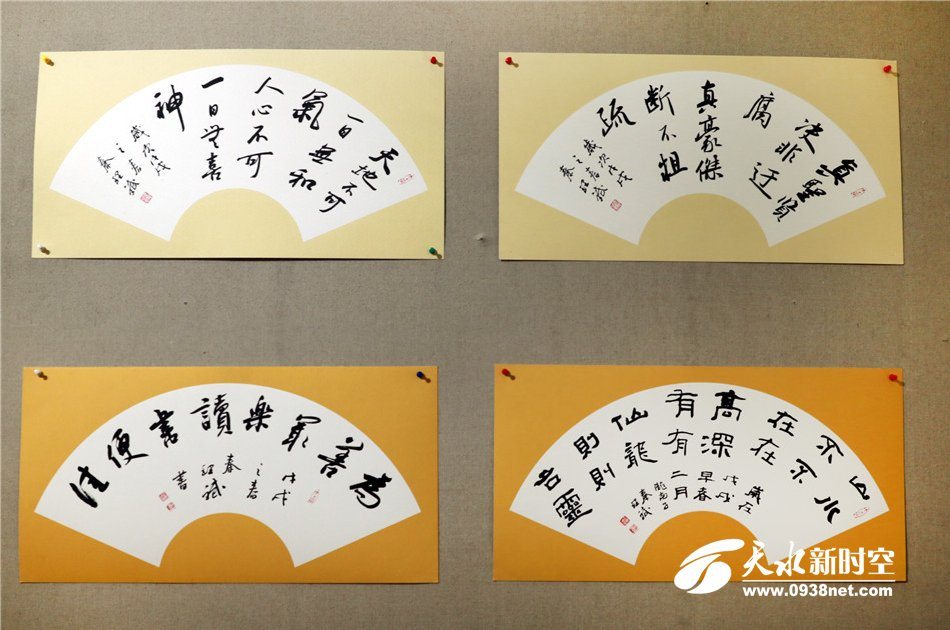 天地不可
一日無和
氣
人心不可
一日無喜
神
歲次戊戌
之春
秦紹斌
真聖贤
决非迂
腐
真豪傑
断不粗
疏
歲次戊戌
之春
秦紹斌
為善最樂讀書便佳
戊戌
之春
秦紹斌
書
山不在高有仙則名
水不在深有龍則靈
歲在
戊戌
早春
二月
秦紹斌
天水新时空
www.0938net.com